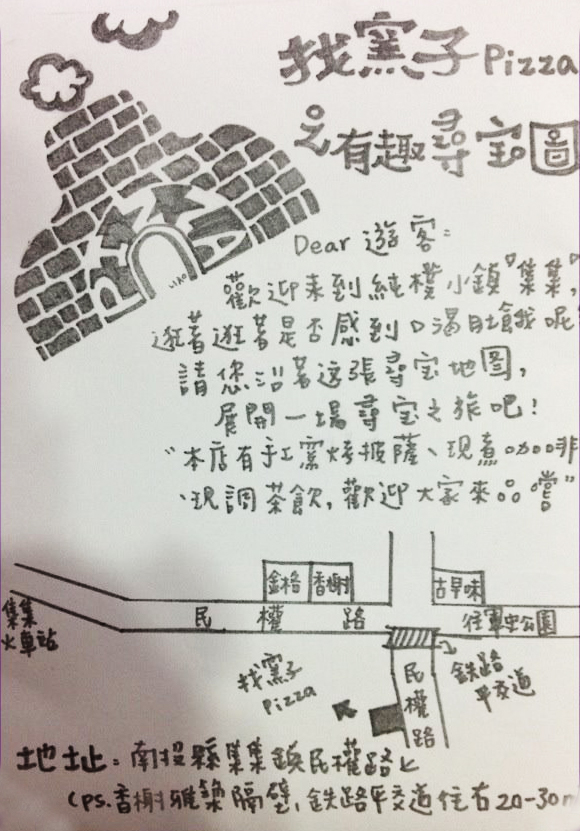 找窯子Pizza
之有趣尋宝圖
PIZZA
Dear 遊客:
歡迎来到純樸小鎮"集集"
逛著逛著是否感到口渴肚餓呢
請您沿著这張尋宝地图,
展開一場尋宝之旅吧!
"本店有手工窯烤披薩、現煮咖啡
、現調茶飲,歡迎大家來品嚐"
金格 香榭 古早味
集集
火車站
民權路
往軍史公園
找窯子
Pizza
民權路
鉄路
平交道
地址:南投縣集集鎮民權路上
(ps.香榭雅築隔壁,鉄路平交道往右20-30m